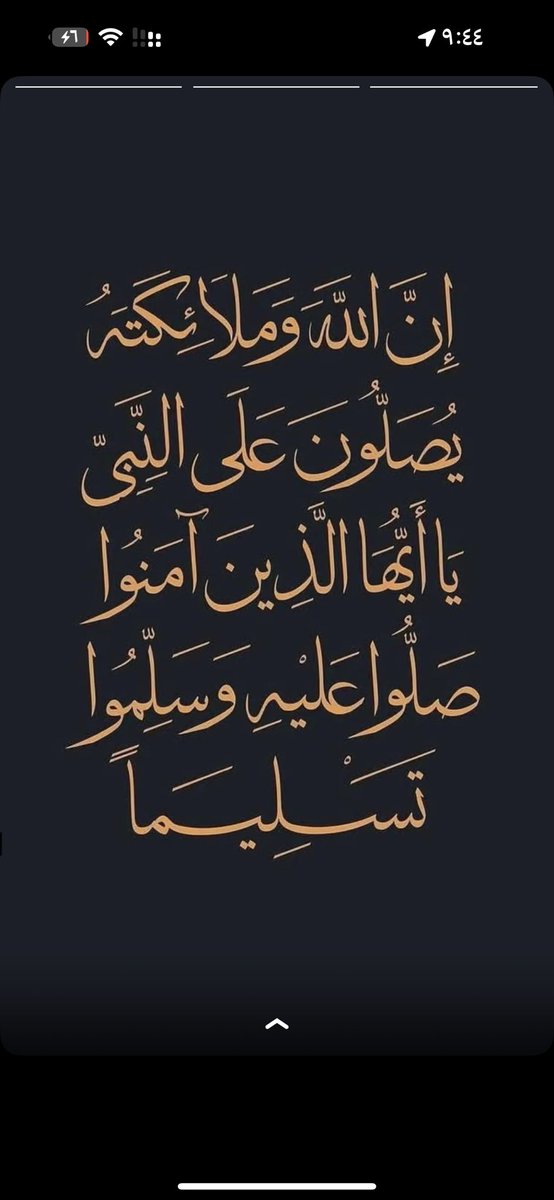 ٩:٤٤
٦
إِنَّ اللَّهَ وَمَلَائِكَتَهُ
يُصَلُّونَ عَلَى النَّبِيِّ
يَا أَيُّهَا الَّذِينَ آمَنُوا
صَلُّوا عَلَيْهِ وَسَلِّمُوا
تَسْلِيمَاً